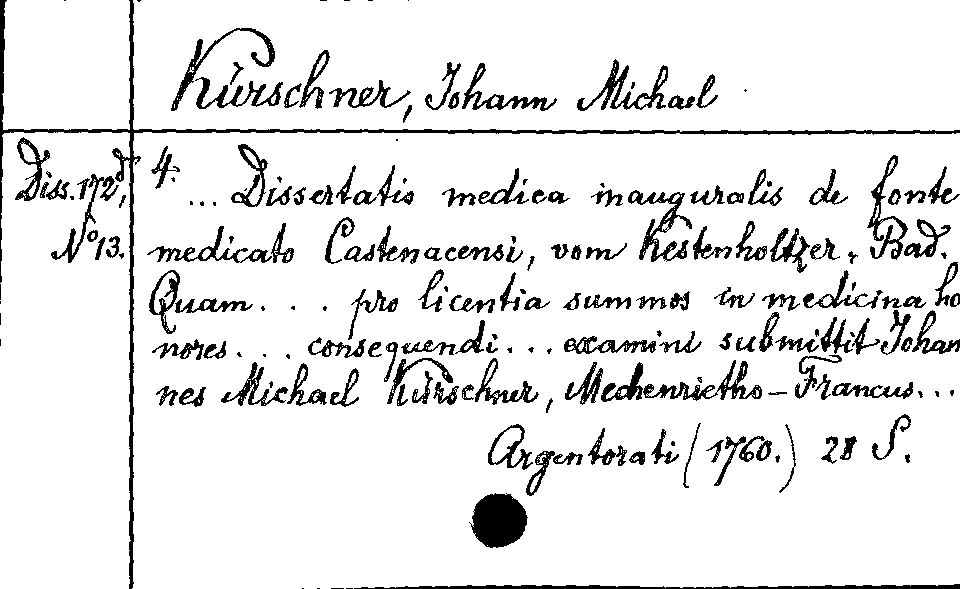 Kürschner, Johann Michael
Diss. 172d,
No 13.
4.
... Dissertatio medica inauguralis de fonte
medicato Castenacensi, vom Kestenholtzer-Bad.
Quam . . . pro licentia summos in medicina ho
nores . . . consequendi . . . examini submittit Johan
nes Michael Kürschner, Mechenrietho-Francus . . .
Argentorati (1760.) 28 S.